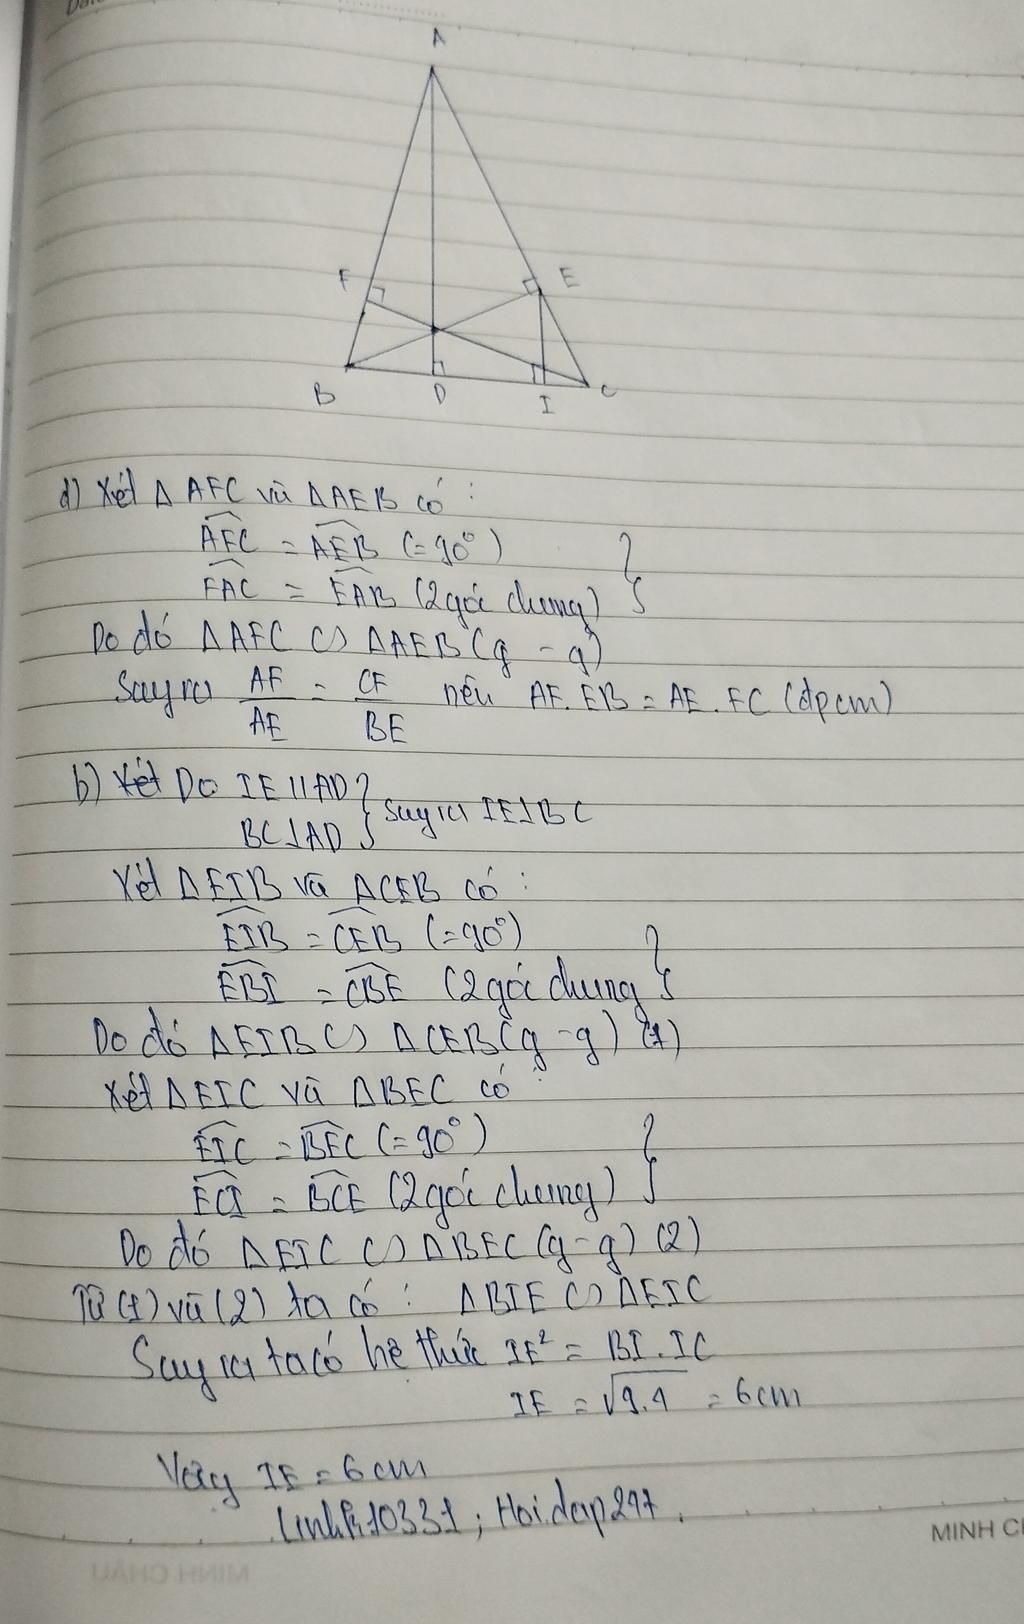 A
F
E
B
D
I
C
d) Xét Δ AFC và ΔAEB có :
AFC = AEB (=90°)
FAC = EAB (2 góc chung) }
Do đó ΔAFC ∽ ΔAEB (g - g)
Suy ra AF/AE = CF/BE nên AF. EB = AE . FC (đpcm)
b) Xét Do IE // AD } Suy ra IE⊥BC
BC⊥AD
Xét ΔEIB và ΔCEB có :
EIB = CEB (=90°)
EBI = CBE (2 góc chung }
Do đó ΔEIB ∽ ΔCEB (g - g) (1)
Xét ΔEIC và ΔBEC có :
EIC = BEC (=90°)
ECI = BCE (2 góc chung) }
Do đó ΔEIC ∽ ΔBEC (g-g) (2)
Từ (1) và (2) ta có : ΔBIE ∽ ΔEIC
Suy ra ta có hệ thức IE² = BI . IC
IE = √9.4 = 6 cm
Vậy IE = 6 cm
; Hoidap247.
MINH CH
MINH CHÂU